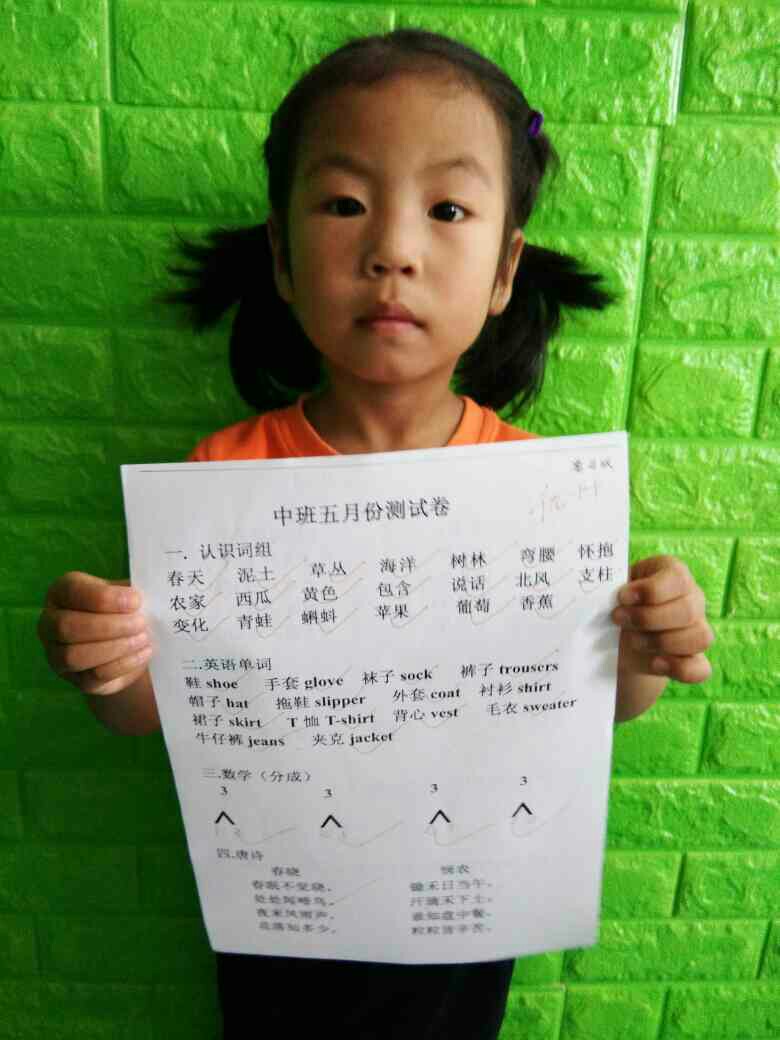 中班五月份测试卷
一.认识词组
春天 泥土 草丛 海洋 树林 弯腰 怀抱
农家 西瓜 黄色 包含 说话 北风 支柱
变化 青蛙 蝌蚪 苹果 葡萄 香蕉
二.英语单词
鞋 shoe 手套 glove 袜子 sock 裤子 trousers
帽子 hat 拖鞋 slipper 外套 coat 衬衫 shirt
裙子 skirt T 恤 T-shirt 背心 vest 毛衣 sweater
牛仔裤 jeans 夹克 jacket
三.数学（分成）
3 3 3 3
四.唐诗
春晓
春眠不觉晓，
处处闻啼鸟。
夜来风雨声，
花落知多少。
悯农
锄禾日当午，
汗滴禾下土。
谁知盘中餐，
粒粒皆辛苦。